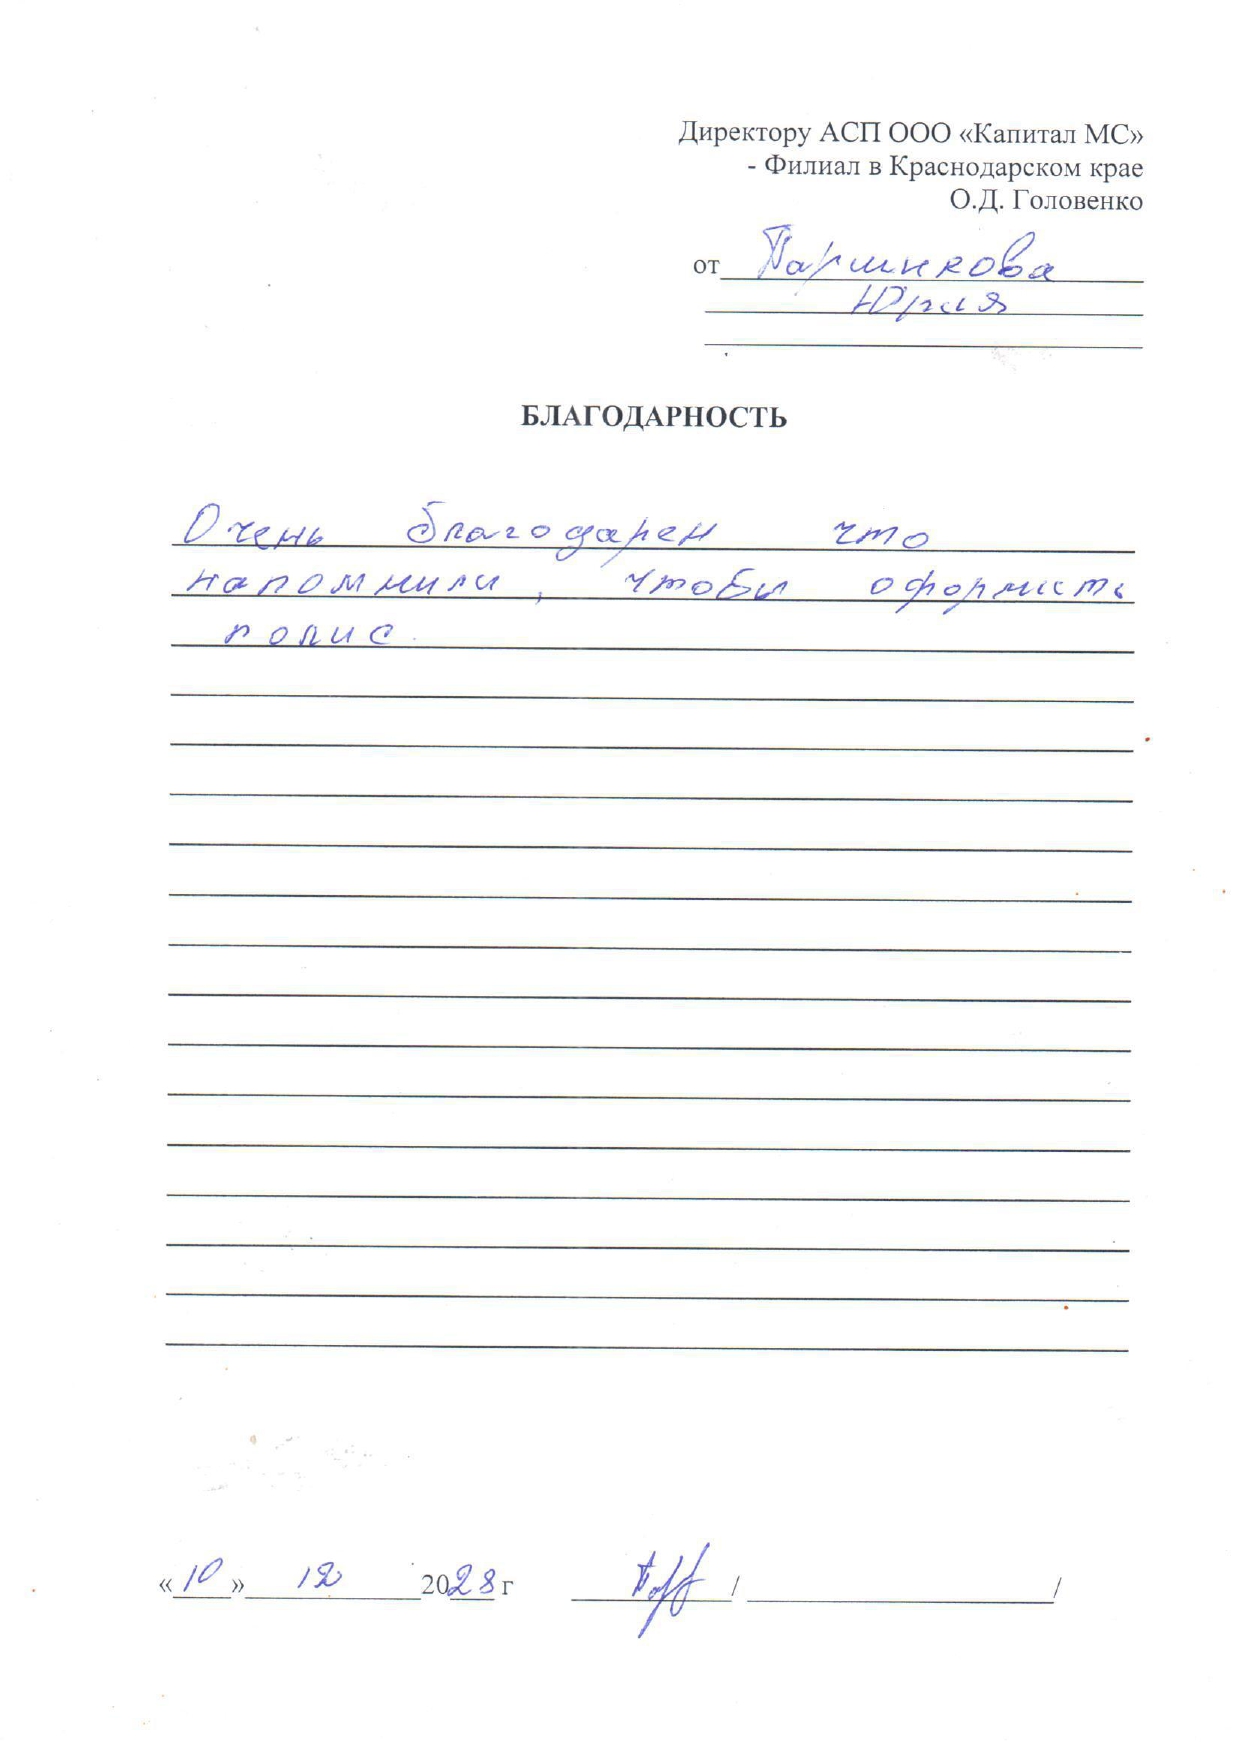 Директору АСП ООО «Капитал МС»
- Филиал в Краснодарском крае
О.Д. Головенко
от Паршикова
Юрия
БЛАГОДАРНОСТЬ
Очень благодарен что
напомнили, чтобы оформить
полис.
«10» 12 2028 г / /